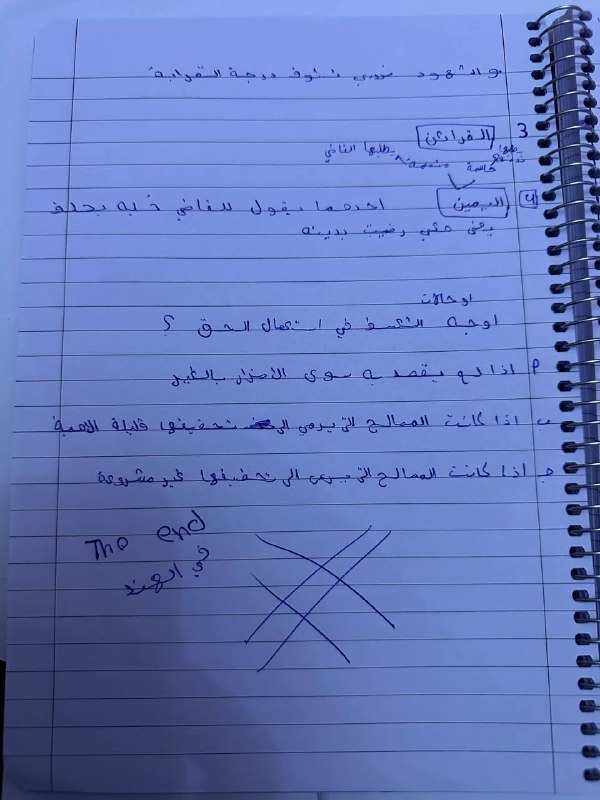 والشهود ضروري نشوف درجة القرابة
3 القرائن
يطلبها القاضي
حاسمة متممة
4 اليمين احدهما يقول للقاضي خليه يحلف
يعني حقي رضيت بدينه
او حالات
اوجه التعسف في استعمال الحق ؟
م اذا لم يقصد به سوى الأضرار بالغير
ب اذا كانت المصالح التي يرمي الى تحقيقها قليلة الاهمية
ج اذا كانت المصالح التي يرمي الى تحقيقها غير مشروعة
The end
في الهند